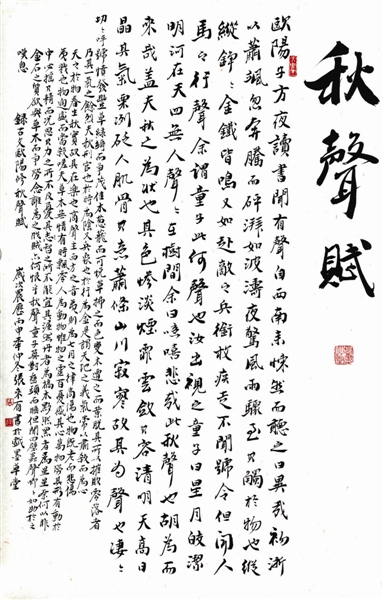 秋聲賦
歐陽子方夜讀書聞有聲自西南來悚然而聽之曰異哉初淅
以蕭颯忽奔騰而砰湃如波濤夜驚風雨驟至其觸於物也縱
縱錚〻金鐵皆鳴又如赴敵之兵銜枚疾走不聞號令但聞人
馬之行聲余謂童子此何聲也汝出視之童子曰星月皎潔
明河在天四無人聲〻在樹間余曰噫嘻悲哉此秋聲也胡為而
來哉蓋夫秋之為狀也其色慘淡煙霏雲斂其容清明天高日
晶其氣栗冽砭人肌骨其意蕭條山川寂寥故其為聲也淒〻
切〻呼號憤發豐草綠縟而爭茂佳木蔥蘢而可悅草拂之而色變木遭之而葉脫其所以摧敗零落者
乃其一氣之餘烈夫秋刑官也於時為陰又兵象也於行為金是謂天地之義氣常以肅殺而為心
天之於物春生秋實故其在樂也商聲主西方之音夷則為七月之律商傷也物既老而悲傷
夷戮也物過盛而當殺嗟夫草木無情有時飄零人為動物惟物之靈百憂感其心萬物勞其形有動於
中必搖其精而況思其力之所不及憂其智之所不能宜其渥然丹者為槁木黟然黑者為星星奈何以非
金石之質欲與草木而爭榮念誰為之戕賊亦何恨乎秋聲童子莫對垂頭而睡但聞四壁蟲聲唧〻如助余之
嘆息
錄古文歐陽修秋聲賦 歲次農曆丙申年仲冬張來有書於盛墨草堂